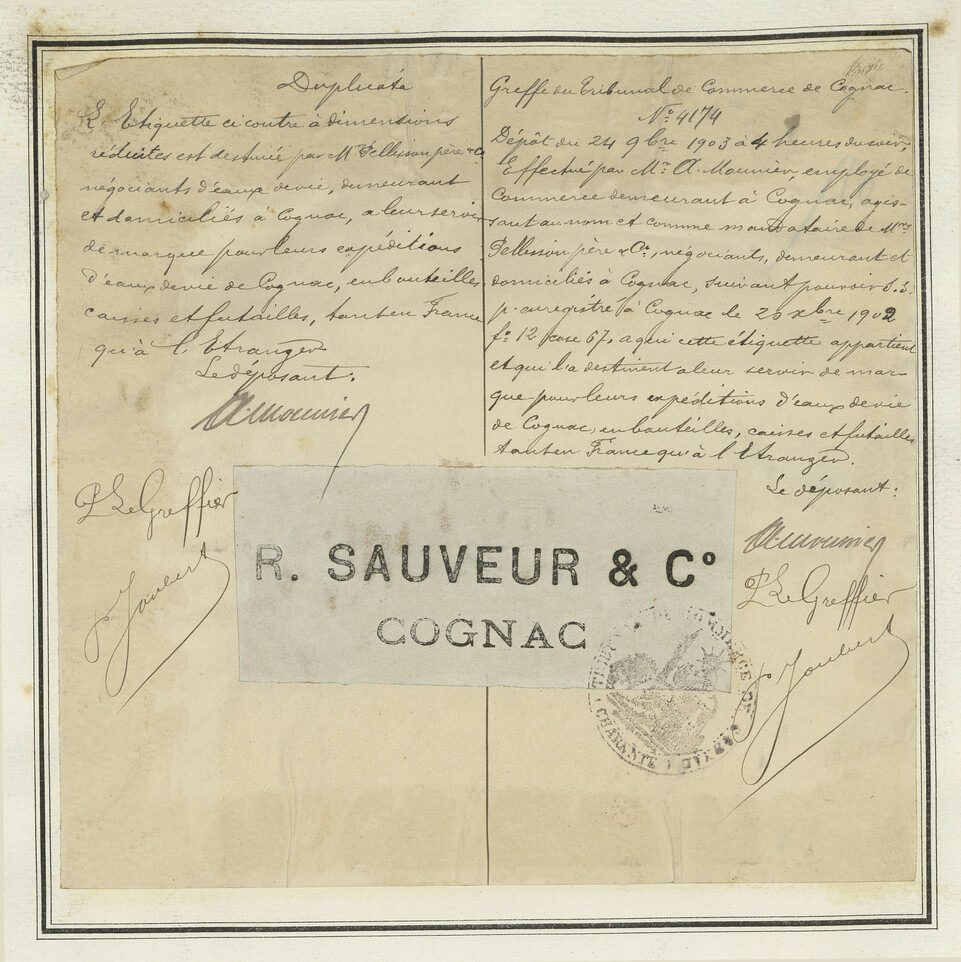 Duplicata
L'Etiquette ci contre à dimentions
réduites est destinée par Mrs Pellisson père & Co
négociants d'eaux de vie, demeurant
et domiciliés à Cognac, a leur servir
de marque pour leurs expéditions
d'eaux de vie de Cognac, en bouteilles,
caisses et futailles, tant en France
qu'à l'Etranger
Le déposant.
A. Mounier
P. Le Greffier
Joubert
Greffe du Tribunal de Commerce de Cognac.
No. 4174
Dépôt du 24 9bre 1903 à 4 heures du soir,
Effectué par Mr. A. Mounier, employé de
Commerce demeurant à Cognac, agis-
sant au nom et comme mandataire de Mrs
Pellisson père & Ce, négociants, demeurant et
domiciliés à Cognac, suivant pouvoir s. s.
p. enregistré à Cognac le 20 xbre 1902
fo. 12 case 67, a qui cette étiquette appartient
et qui l'a destinent a leur servir de mar-
que pour leurs expéditions d'eaux de vie
de Cognac, en bouteilles, caisses et futailles
tant en France qu'à l'Etranger.
Le déposant.
A. Mounier
P. Le Greffier
Joubert
R. SAUVEUR & Co
COGNAC
TRIBUNAL DE COMMERCE DE COGNAC
(CHARENTE)